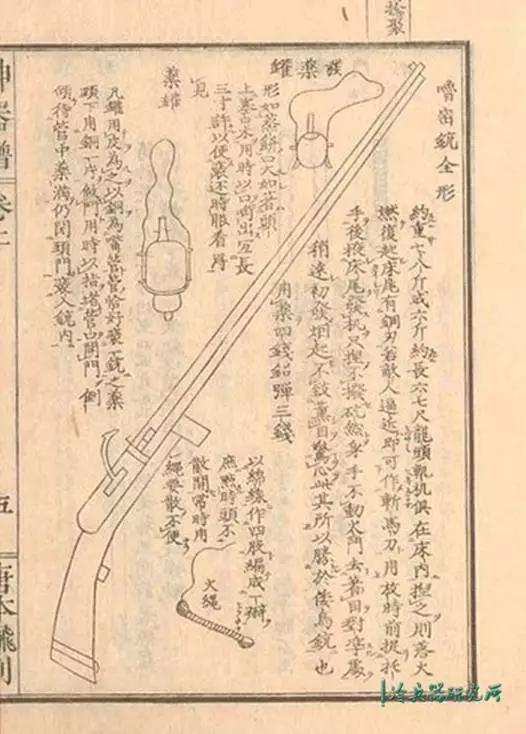 嚕密銃全形
約重七八斤或六斤約長六七尺龍頭軌机俱在床内捏之則落火
燃復起床尾有鋼刃若敵人逼近即可作斬馬刀用放時前捉托
手後掖床尾發机只捏不撥砣然身手不動火門去著目對準處
稍遠初發烟起不致薰目驚心此其所以勝於倭鳥銃也
用藥四錢鉛彈三錢
發藥罐
形如蒸餅口大如
上塞口木用時以口啣出長
三寸許以便裝時眼看得
見
藥罐
凡罐用皮為之以銅為嘴管管恰好裝一銃之藥
頭下用銅一片做門用時以指堵管口開門倒
傾待管中藥滿仍閉頭門裝入銃内
以綿線作四股編成一辮
庶燃時頭不
散開常時用
繩要散不便
火繩
神器譜
五
唐本翻刻
冷兵器研究所